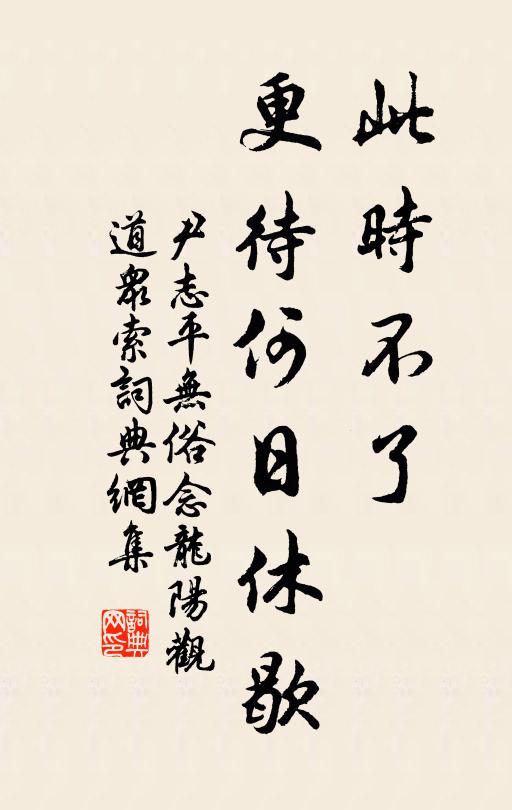 此時不了
更待何日休歇
尹志平無俗念龍陽觀
道眾索詞典網集
詞典网印